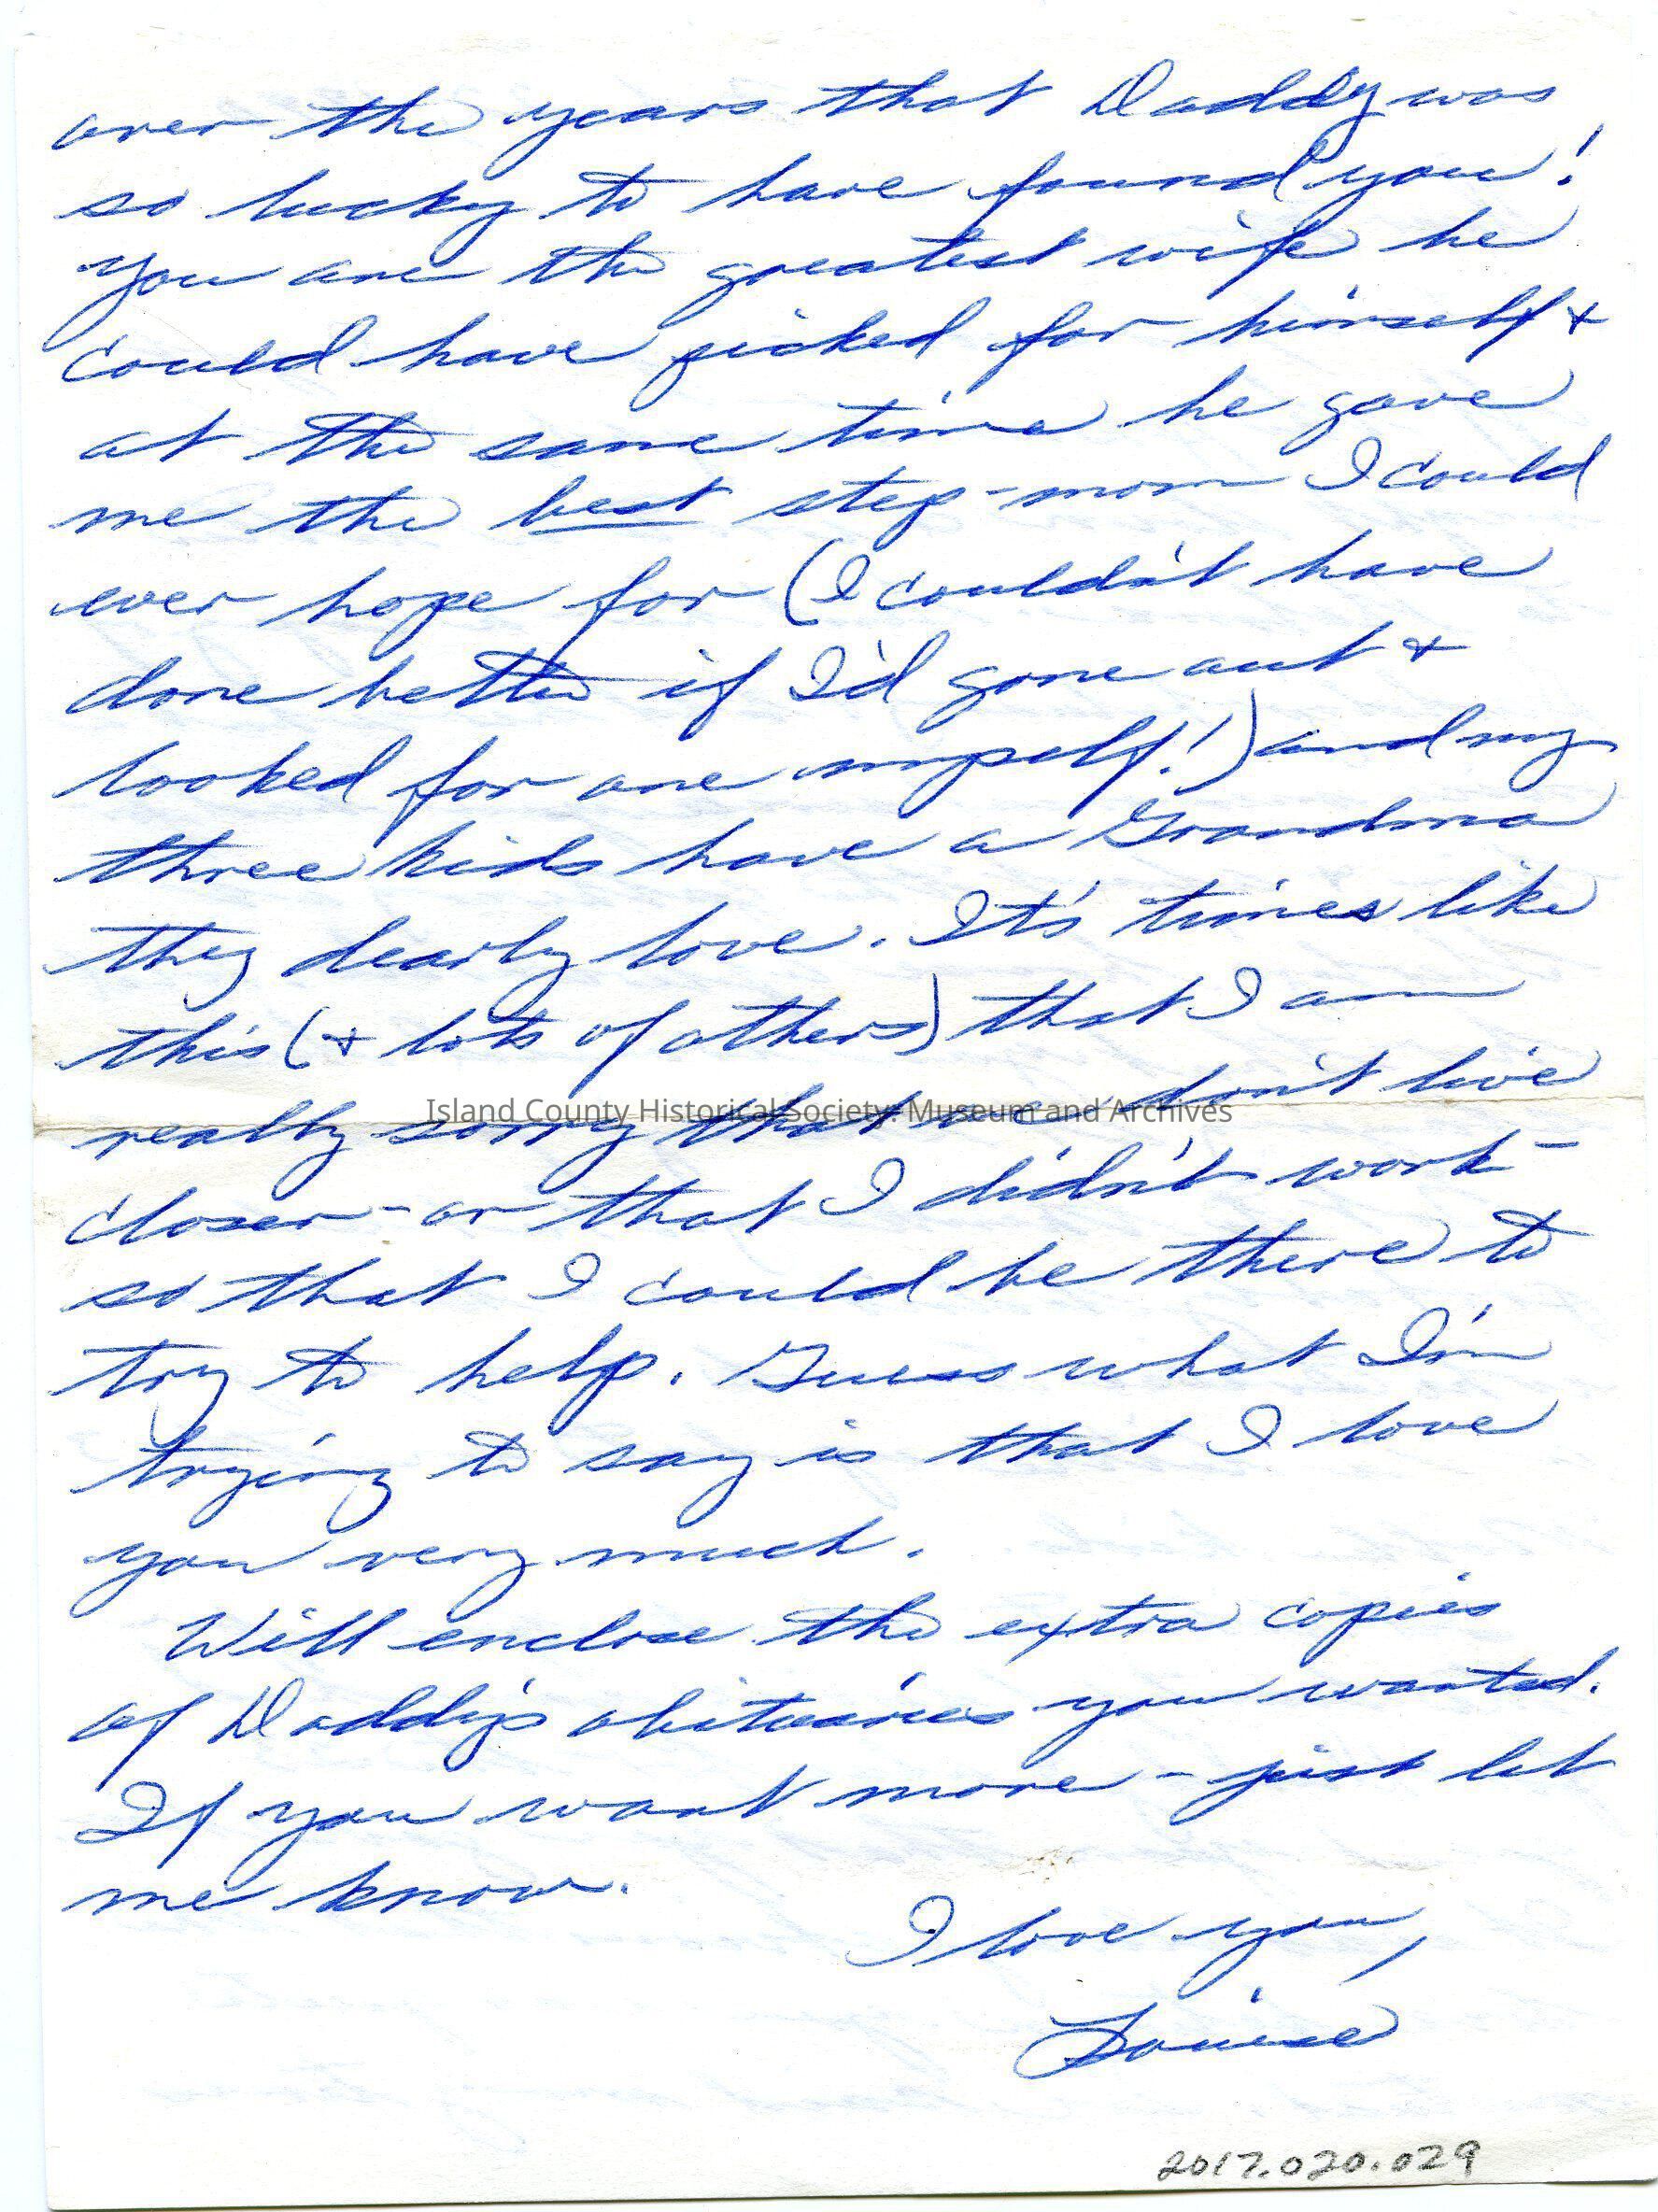 over the years that Daddy was
so lucky to have found you!
You are the greatest wife he
could have picked for himself &
at the same time he gave
me the best step-mom I could
ever hope for (I couldn't have
done better if I'd gone out &
looked for one myself!) and my
three kids have a Grandma
they dearly love. It's times like
this (& lots of others) that I am
really sorry that we don't live
Island County Historical Society: Museum and Archives
closer - or that I didn't work -
so that I could be there to
try to help. Guess what I'm
trying to say is that I love
you very much.
Will enclose the extra copies
of Daddy's obituaries you wanted.
If you want more - just let
me know.
I love you,
Louise
2017.020.029